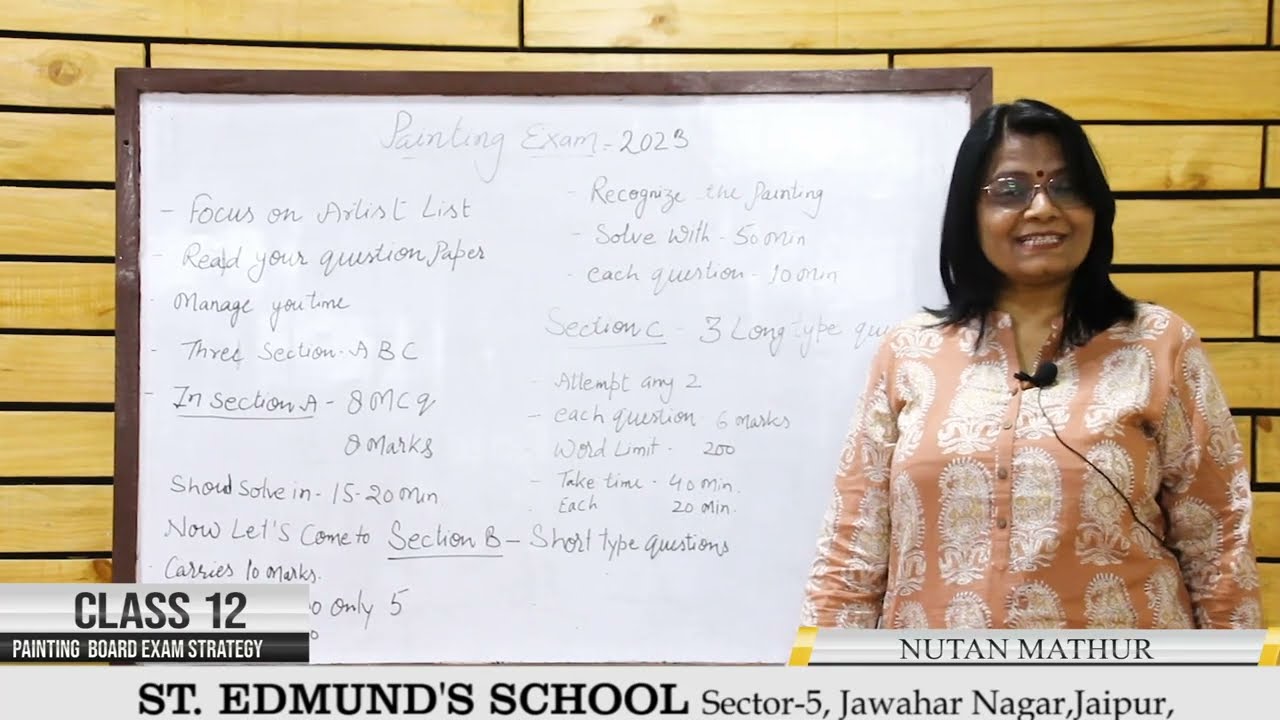 Painting Exam = 2023
- Focus on Artist List
- Read your question Paper
- Manage you time
- Three Section - A B C
- In Section A - 8 MCq
8 Marks
Should Solve in - 15-20 Min
Now Let's Come to Section B - Short type questions
- Carries 10 Marks.
only 5
- Recognize the Painting
- Solve with - 50 min
- each question - 10 min
Section C - 3 Long type
- Attempt any 2
- each question 6 marks
- Word Limit - 200
- Take time - 40 min.
- Each 20 min.
CLASS 12
PAINTING BOARD EXAM STRATEGY
NUTAN MATHUR
ST. EDMUND'S SCHOOL Sector-5, Jawahar Nagar,Jaipur,